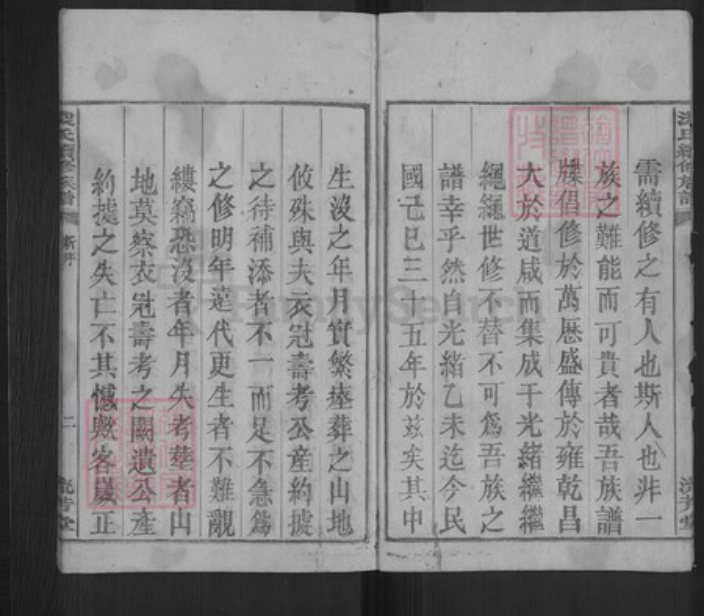 需續修之有人也斯人也非一
族之難能而可貴者哉吾族譜
牒倡修於萬厯盛傳於雍乾昌
大於道咸而集成于光緒繼繼
繩繩世修不替不可爲吾族之
譜幸乎然自光緒乙未迄今民
國己巳三十五年於兹矣其中
生沒之年月實繁瘞葬之山地
攸殊與夫衣冠壽考公產約據
之待補添者不一而足不急爲
之修明年莲代更生者不難覼
縷竊恐沒者年月失考塟者山
地莫察衣冠壽考之闕遺公產
約據之失亡不其憾歟客歲正
氏續修族譜
新序
二
流芳堂
FamilySearch